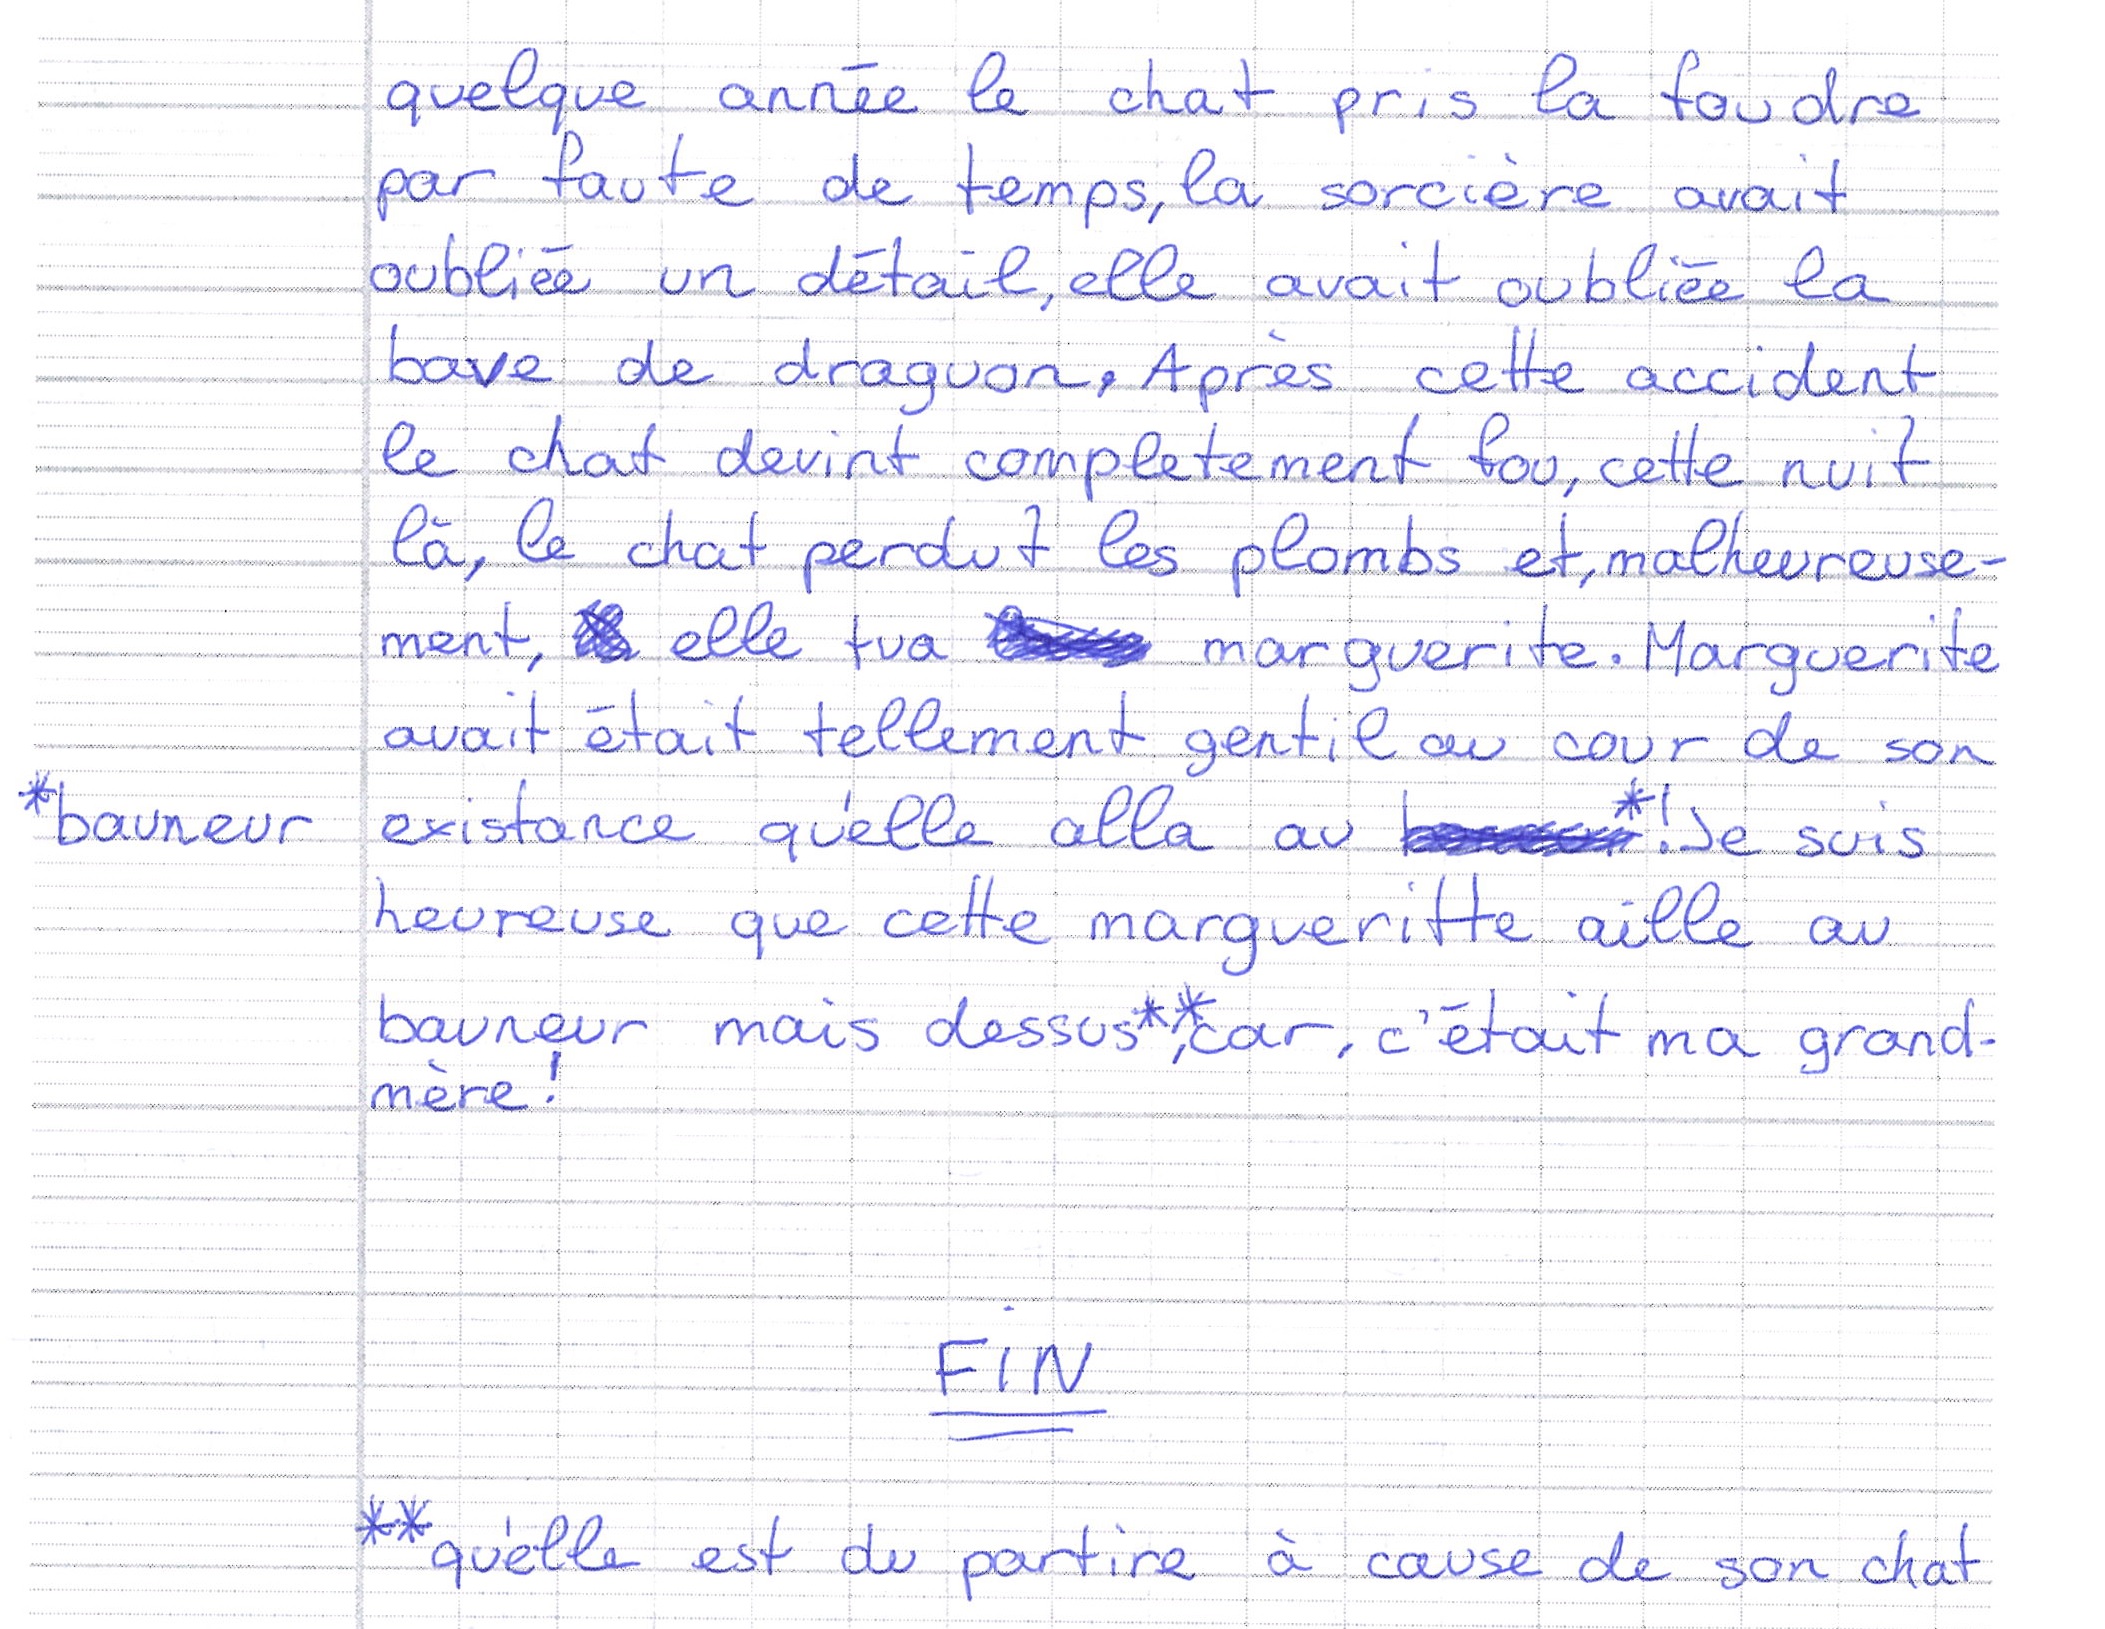 quelque année le chat pris la foudre
par faute de temps, la sorcière avait
oubliée un détail, elle avait oubliée la
bave de draguon. Après cette accident
le chat devint completement fou, cette nuit
là, le chat perdut les plombs et, malheureuse-
ment, elle tua marguerite. Marguerite
avait était tellement gentil au cour de son
*bauneur existance qu'elle alla au *! Je suis
heureuse que cette margueritte aille au
bauneur mais dessus**, car, c'était ma grand-
mère!
FiN
**qu'elle est du partire à cause de son chat